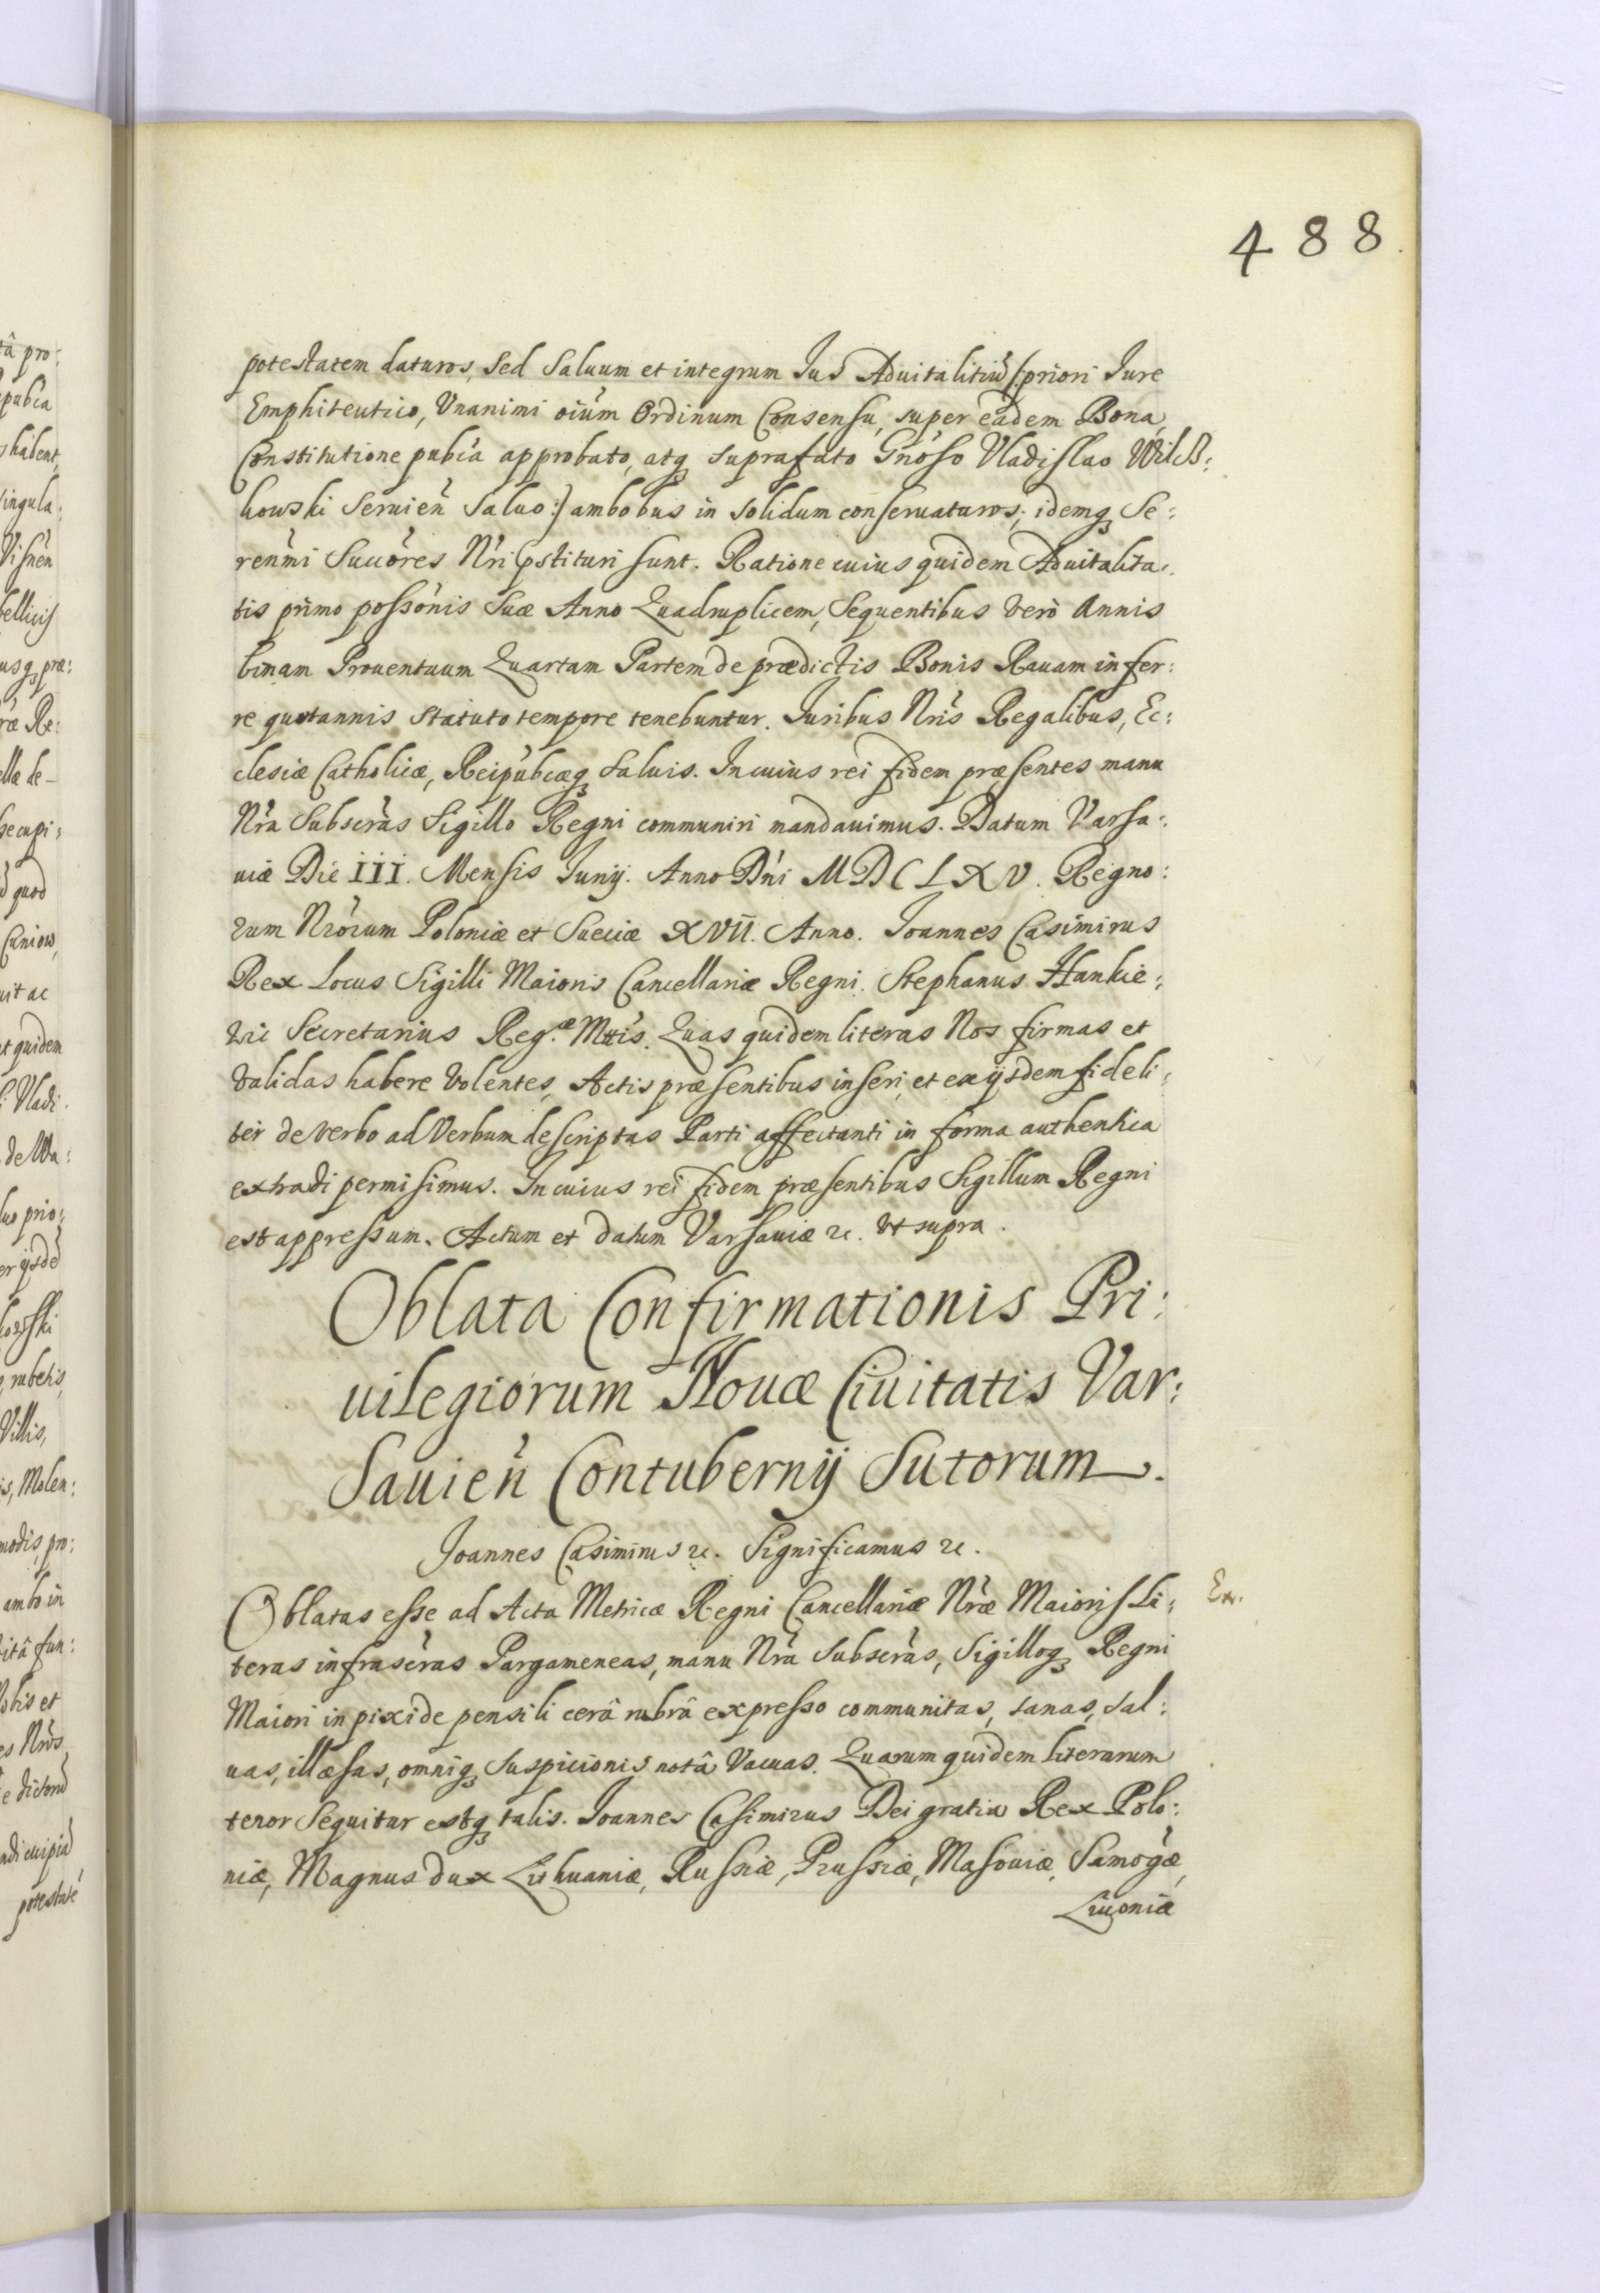 488
potestatem daturos, sed Saluum et integrum Ius Aduitalitiũ (:priori Iure
Emphiteutico, Vnanimi oiũm Ordinum Consensu, super eadem Bona,
Constitutione pubca approbato, atq suprafato Gnoso Vladislao Wilcz:
kowski Seruien Saluo:) ambobus in solidum conseruaturos; idemq Se:
renmi Succores Nri pstituri sunt. Ratione cuius quidem Aduitalita:
tis primo possonis Suæ Anno Quadruplicem, Sequentibus verò Annis
binam Prouentuum Quartam Partem de prædictis Bonis Rauam infer:
re quotannis statuto tempore tenebuntur. Iuribus Nris Regalibus, Ec:
clesiæ Catholicæ, Reipubcæq saluis. In cuius rei fidem præsentes manu
Nra Subscras Sigillo Regni communiri mandauimus. Datum Varsa:
uiæ Die III. Mensis Iunij. Anno Dni MDCLXV. Regno:
rum Nrorum Poloniæ et Sueciæ XVII. Anno. Joannes Casimirus
Rex Locus Sigilli Maioris Cancellariæ Regni. Stephanus Hankie:
wic Secretarius Reg.æ Mttis. Quas quidem literas Nos firmas et
validas habere volentes, Actis præsentibus inseri, et ex ijsdem fideli:
ter de verbo ad Verbum descriptas Parti affectanti in forma authentica
extradi permisimus. In cuius rei fidem præsentibus Sigillum Regni
est appressum. Actum et datum Varsauiæ &c. Vt supra.
Oblata Confirmationis Pri:
uilegiorum Nouæ Ciuitatis Var:
sauien Contubernij Sutorum.
Joannes Casimirus &c. Significamus &c.
Oblatas esse ad Acta Metricæ Regni Cancellariæ Nræ Maioris Li: Ex.
teras infrascras Pargameneas, manu Nra Subscras, Sigilloq Regni
Maiori in pixide pensili cerâ rubrâ expresso communitas, sanas, sal:
uas, illæsas, omniq suspicionis notâ Vacuas. Quarum quidem literarum
tenor Sequitur estq talis. Joannes Casimirus Dei gratia Rex Polo:
niæ, Magnus dux Lithuaniæ, Russiæ, Prussiæ, Masouiæ, Samogæ,
Liuoniæ